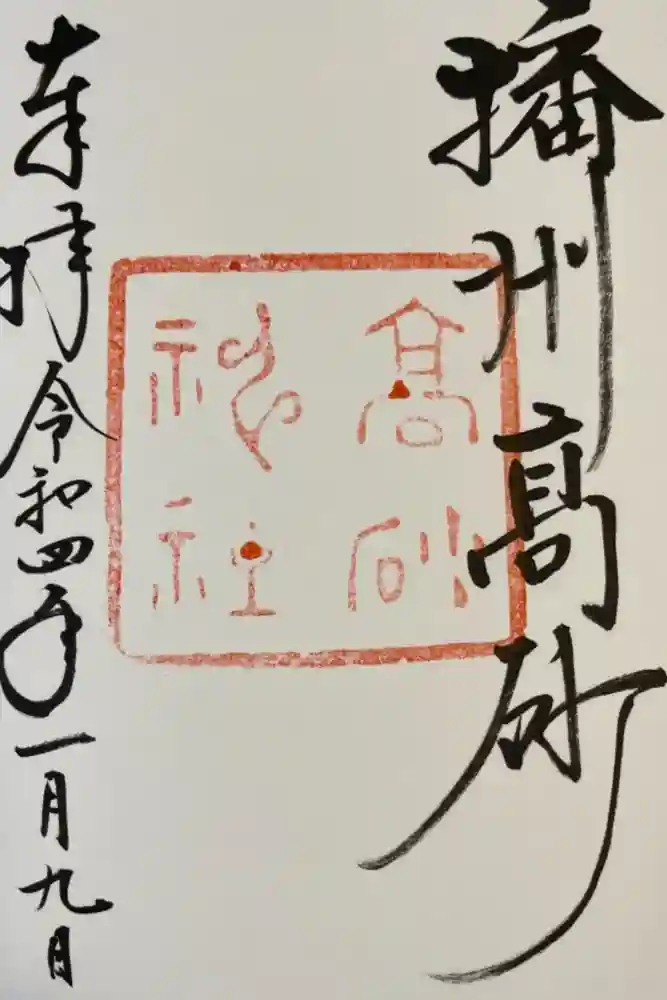 播州髙砂
髙砂
神社
奉拝令和四年一月九日